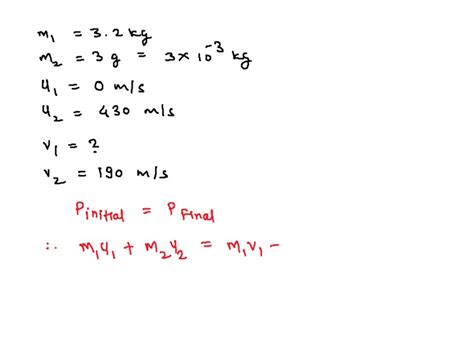 m₁ = 3.2 kg
m₂ = 3 g = 3×10⁻³ kg
u₁ = 0 m/s
u₂ = 430 m/s
v₁ = ?
v₂ = 190 m/s
P initial = P Final
∴ m₁u₁ + m₂u₂ = m₁v₁ -